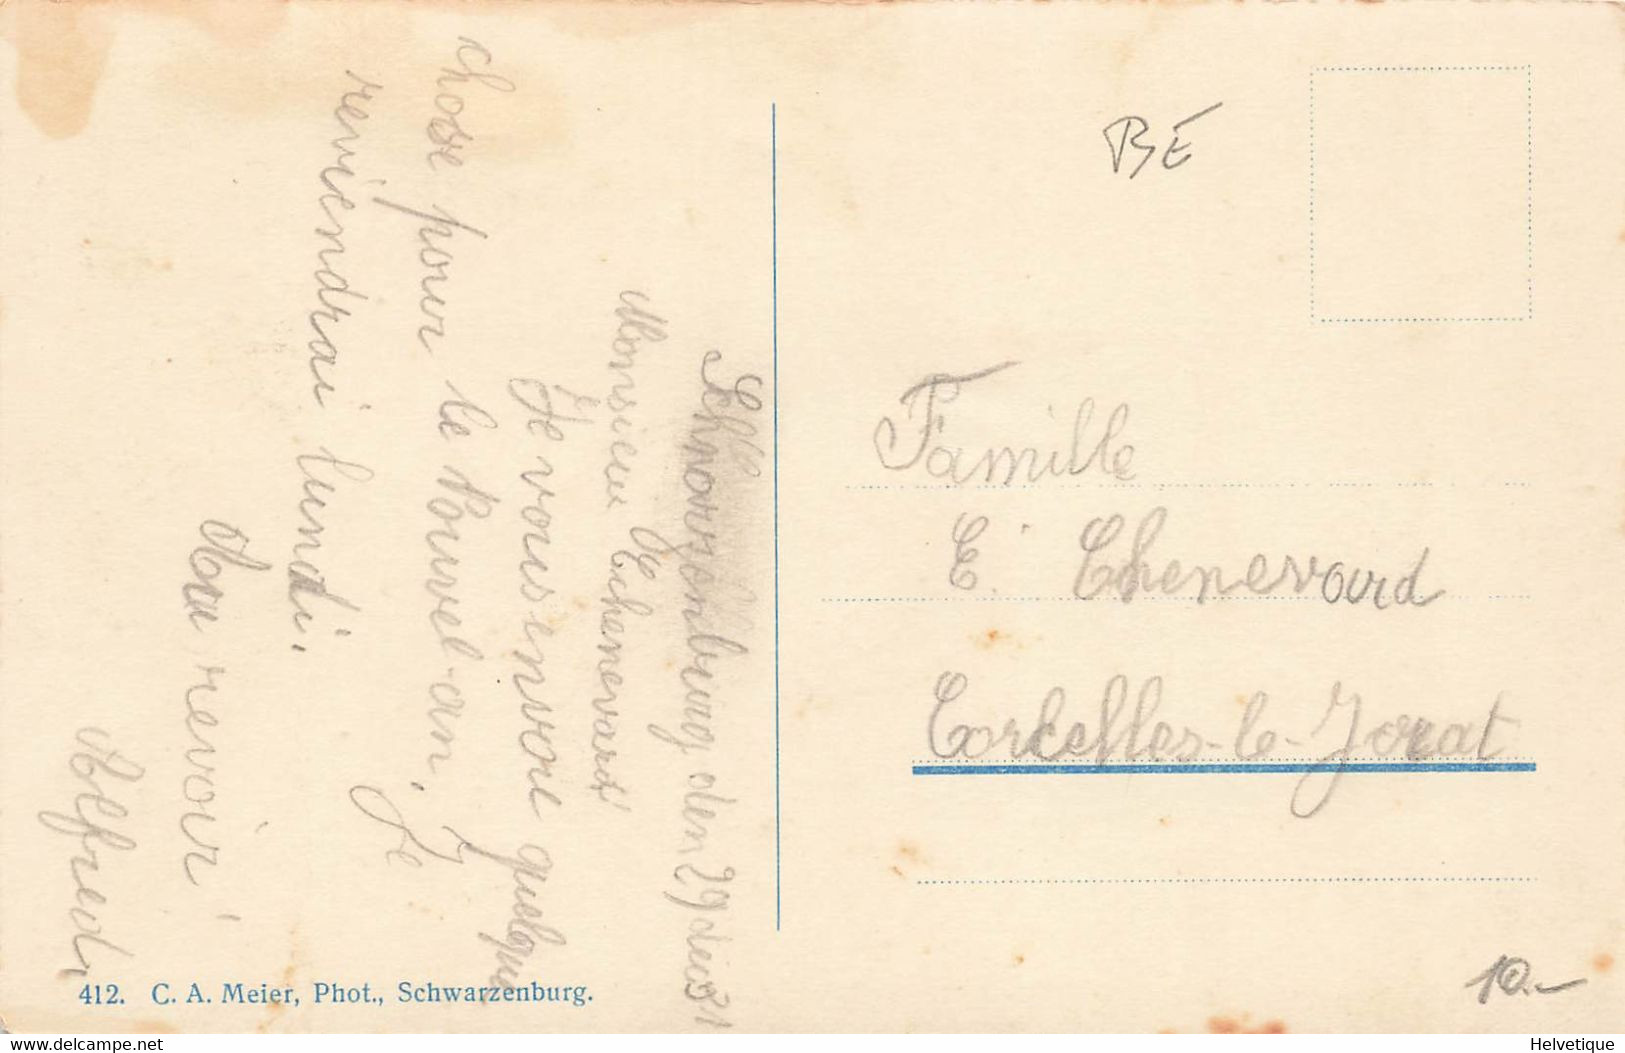 Schwarzenburg den 29 dus 31
Monsieur E. Chenevard
Je vous envoie quelque
chose pour le Nouvel-an, Je
reviendrai lundi.
Au revoir
Alfred.
BE
Famille
E. Chenevard
Corcelles-le-Jorat
10.-
412. C. A. Meier, Phot., Schwarzenburg.
www.delcampe.net
Helvetique